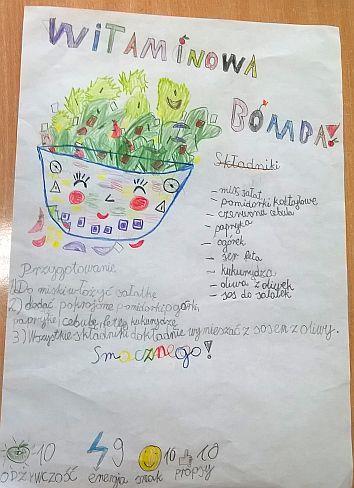 WITAMINOWA
BOMBA!
Składniki
- mix sałat
- pomidorki koktajlowe
- czerwona cebula
- papryka
- ogórek
- ser feta
- kukurydza
- oliwa z oliwek
- sos do sałatek
Przygotowanie
1) Do miski włożyć sałatkę
2) dodać pokrojone pomidorki, ogórka,
paprykę, cebulę, fetę, kukurydzę
3) Wszystkie składniki dokładnie wymieszać z sosem z oliwy.
Smacznego!
10 9 10 10
ODŻYWCZOŚĆ energia smak propsy